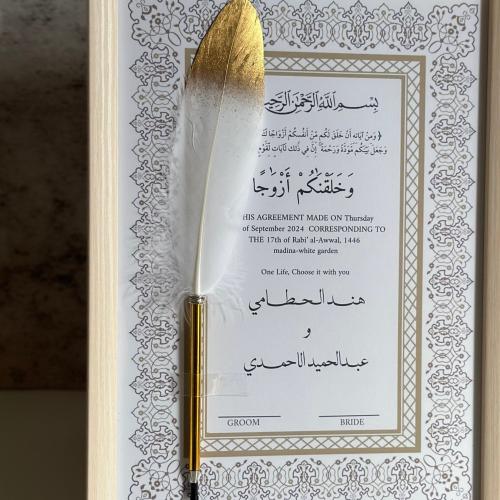 بِسْمِ اللَّهِ الرَّحْمَٰنِ الرَّحِيمِ
﴿ وَمِنْ آيَاتِهِ أَنْ خَلَقَ لَكُم مِّنْ أَنفُسِكُمْ أَزْوَاجًا
وَجَعَلَ بَيْنَكُم مَّوَدَّةً وَرَحْمَةً إِنَّ فِي ذَٰلِكَ لَآيَاتٍ لِّقَوْمٍ
وَخَلَقْنَاكُمْ أَزْوَاجًا
HIS AGREEMENT MADE ON Thursday
of September 2024 CORRESPONDING TO
THE 17th of Rabi' al-Awwal, 1446
madina-white garden
One Life, Choose it with you
هند الحطامي
و
عبدالحميد الاحمدي
GROOM BRIDE